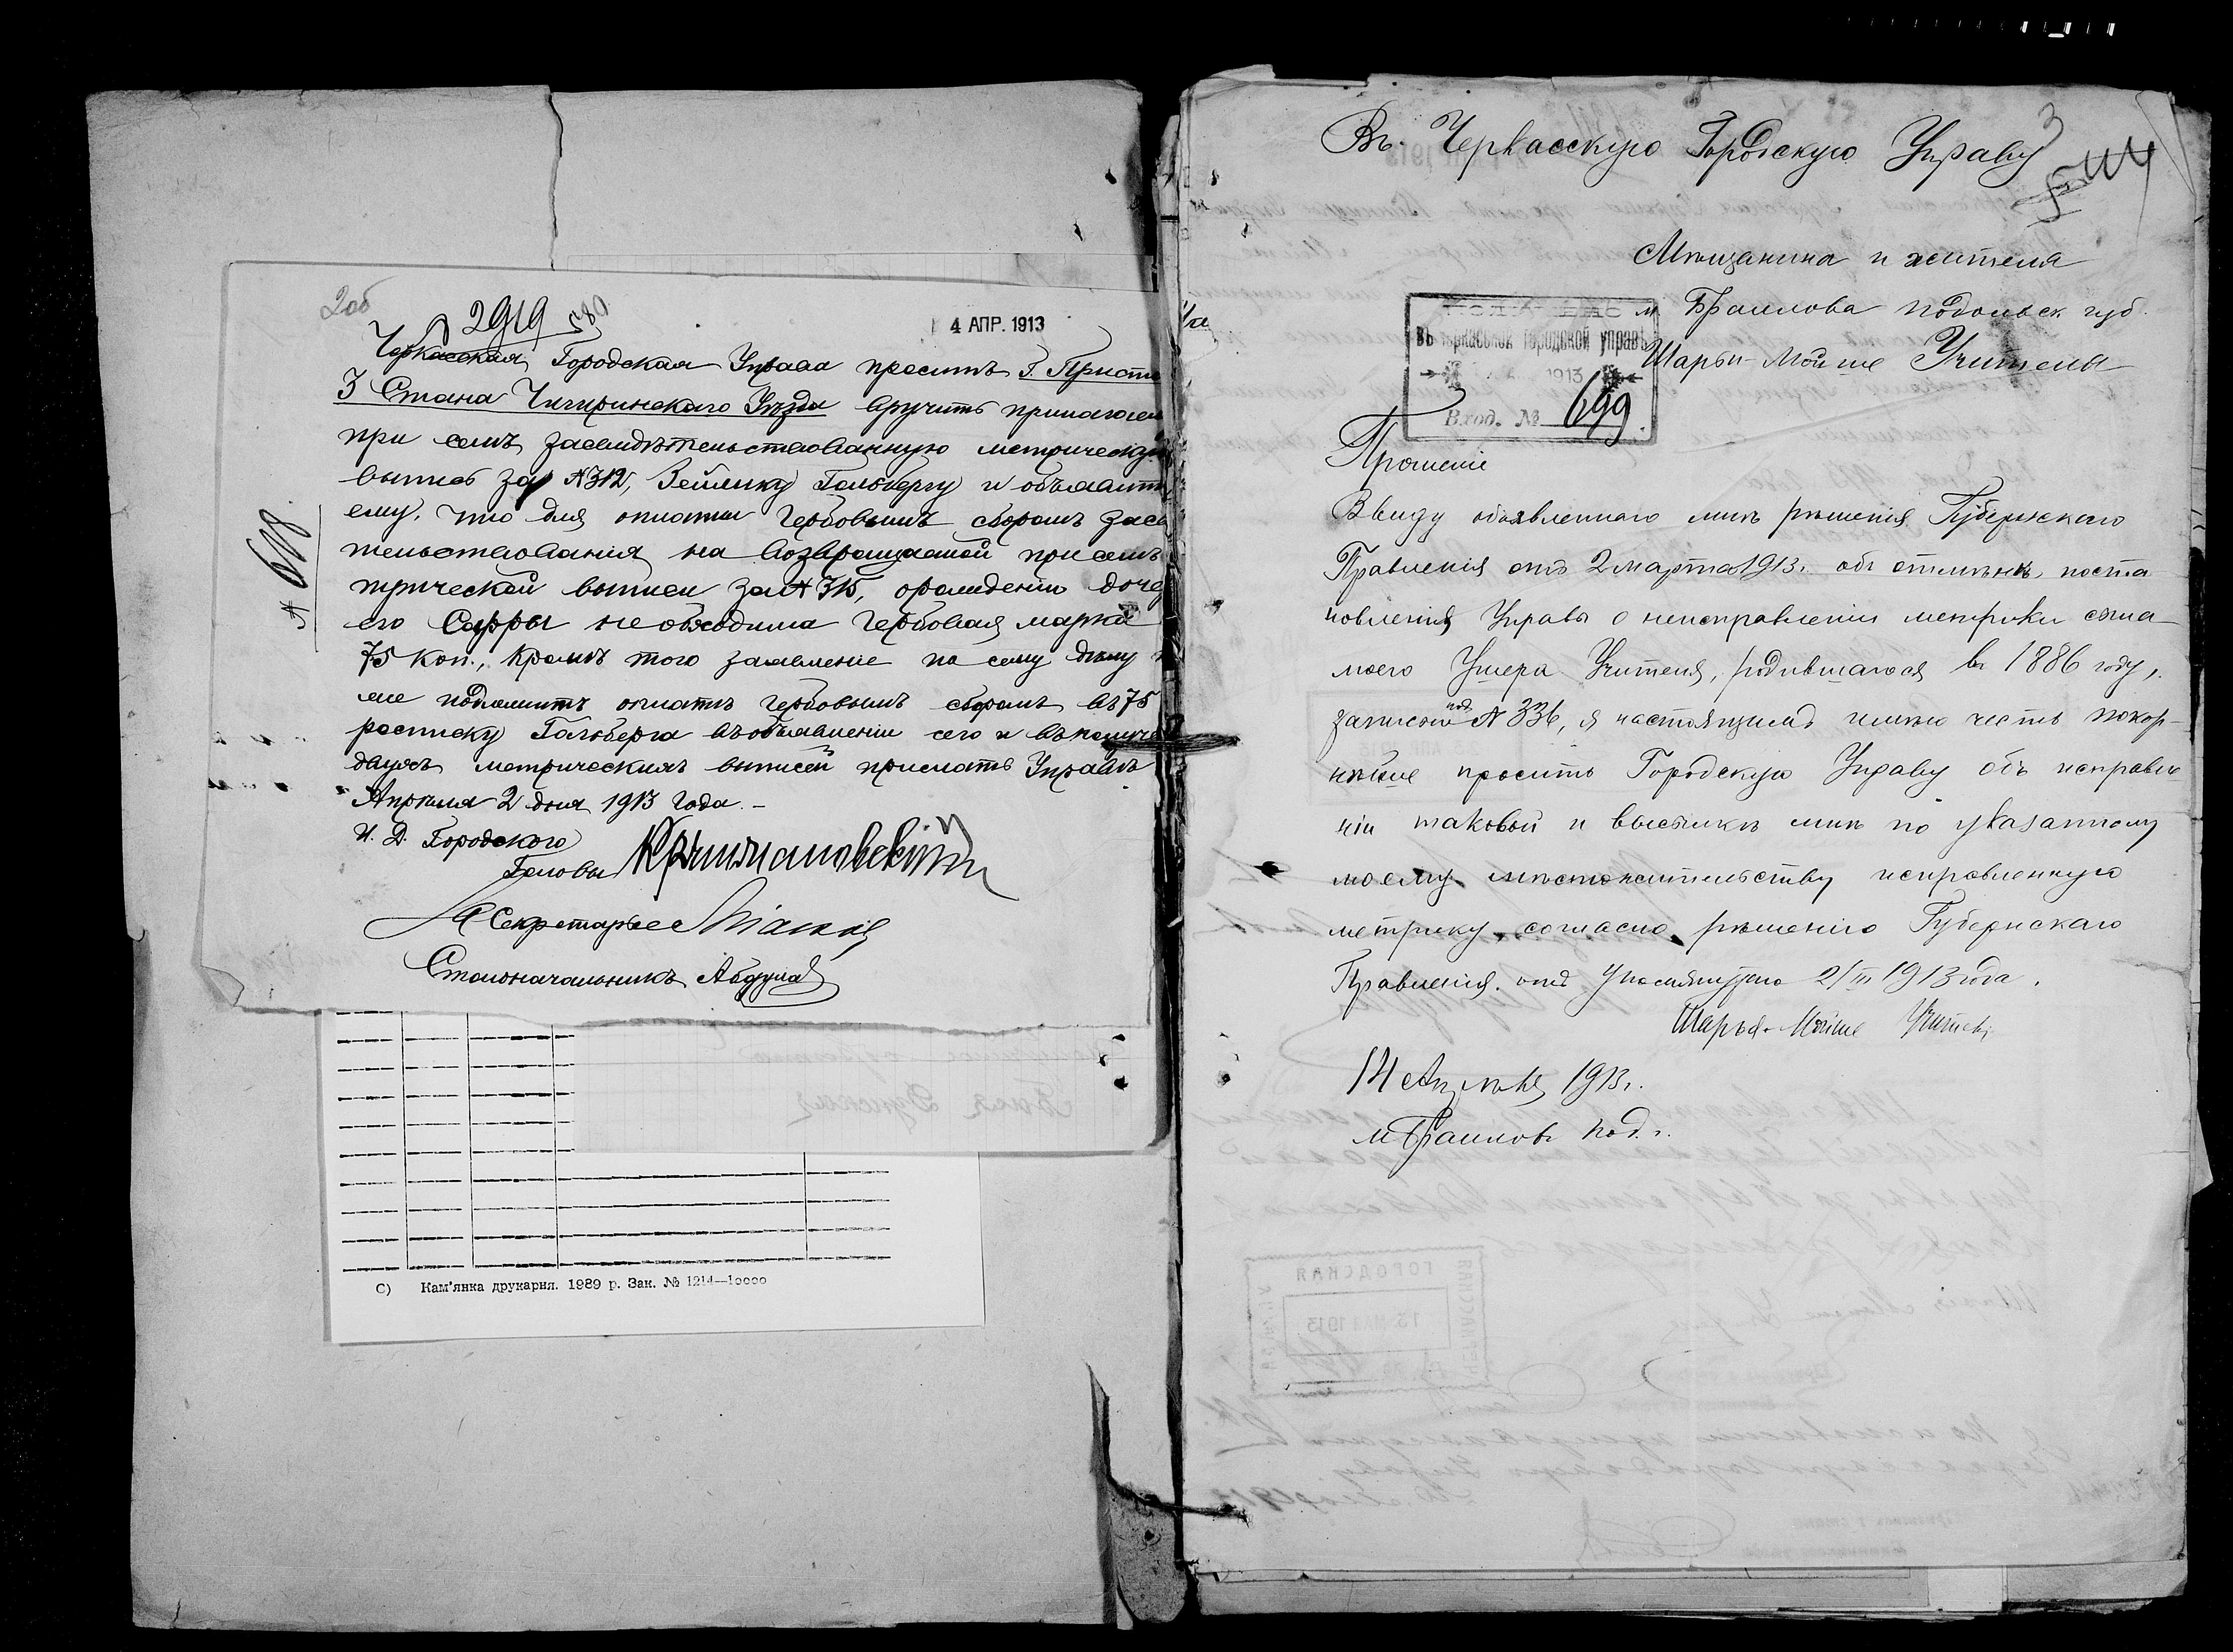 2об
2919
4 АПР. 1913
Черкасская Городская Управа проситъ Г. Приста
3 Стана Чигиринскаго Уѣзда вручить прилагаем
при семъ засвидѣтельствованную метрическую
выпись за № 312, Зейлику Гольбергу и объявить
ему, что для оплаты гербовымъ сборомъ засви
тельствованія на возвращаемой при семъ
трической выписи за № 315, о рожденіи доче
его Сарры необходима гербовая марка
75 коп., кромѣ того заявленіе по сему дѣлу
же подлежитъ оплатѣ гербовымъ сборомъ въ 75
росписку Гольберга въ объявленіи сего и въ получе
двухъ метрическихъ выписей прислать Управѣ
Апрѣля 2 дня 1913 года.-
И. Д. Городского
Головы
Секретарь
Столоначальникъ
№ 618
С) Кам'янка друкарня. 1989 р. Зак. № 1214—10000
3
Въ Черкасскую Городскую Управу
Мѣщанина и жителя
м Браилова Подольск губ.
Шарьи-Мойше Учителя
въ черкасской городской управѣ
1913
Вход. № 699
Прошеніе
Ввиду объявленнаго мнѣ рѣшенія Губернскаго
Правленія отъ 2 марта 1913 г. объ отмѣнѣ поста
новленія Управы о неисправленіи метрики сына
моего Ушера Учителя, родившагося въ 1886 году,
записью под № 336, я настоящимъ имѣю честь покор-
нѣйше просить Городскую Управу объ исправле
ніи таковой и высылкѣ мнѣ по указанному
моему мѣстожительству исправленную
метрику, согласно рѣшенію Губернскаго
Правленія отъ упомянутаго 2/III 1913 года.
Шарья-Мойше Учитель
14 Апрѣля 1913 г.
м Браиловъ Под. г.
ГОРОДСКАЯ
13 МАЯ 1913